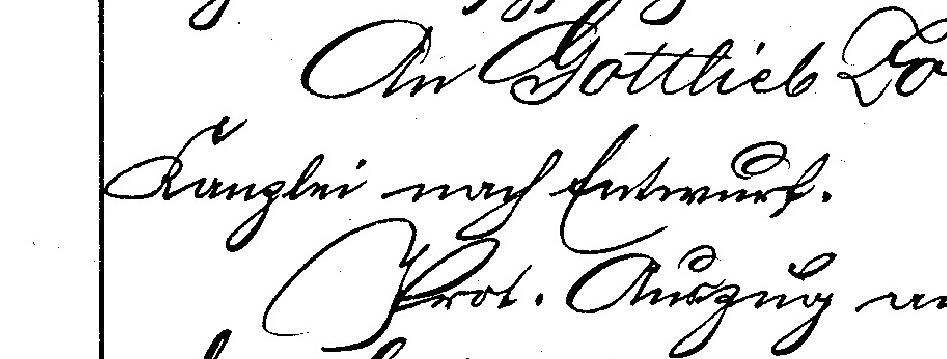 An Gottlieb
Kanzlei nach Entwurf.
Prot. Auszug an